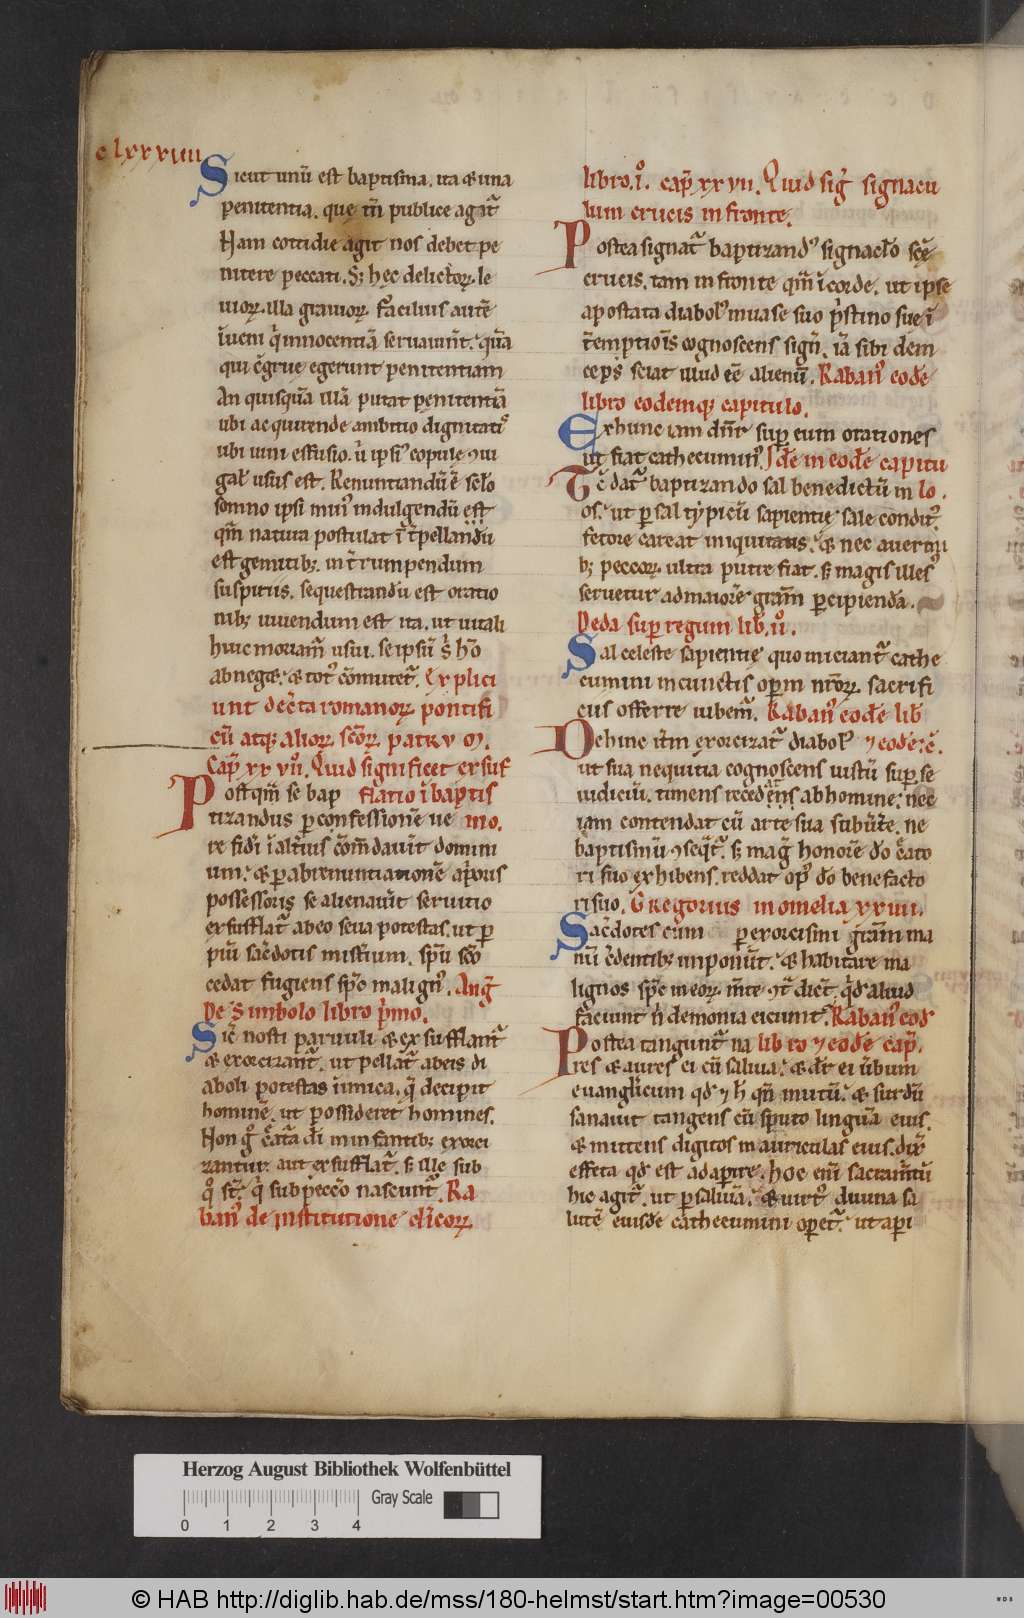 c lxxxiiii
Sicut unū est baptisma. ita & una
penitentia. quę tn̄ publice agat᷑
Nam cottidie agit nos debet pe
nitere peccati. S; hęc delictoꝝ le
uioꝝ. illa grauioꝝ. Facilius autē
īueni qͥ innocentiā seruauint. quā
qui c̄grue egerunt penitentiam
An quisquā illā putat penitentiā
ubi acquirende ambitio dignitatis
ubi uini effusio. ů ipsiꝰ copule ꝯiu
galis usus est. Renuntiandū ē sclo
somno ipsi minꝰ indulgendū est
qm̄ natura postulat īt̄pellandū
est gemitib;. int̄rumpendum
suspiriis. sequestrandū est oratio
nib; uiuendum est ita. ut uitali
huic moriam̄ usui. se ipsū s̄ hō
abneget & totꝰ cōmutet᷑. Expliciunt
decr̄ta romanoꝝ pontifi
cū atq; alioꝝ scōꝝ patrū
Cap̄ xxvii. Quid significet exsuf
flatio ī baptis
mo.
Postqm̄ se bap
tizandus ꝑ confessionē ue
re fidei ī alt̄ius cōm̄dauit domini
um. & ꝑ abrenuntiationē aprius
possessoris se alienauit seruitio
exsufflat᷑ ab eo seua potestas. ut ꝑ
piū sac̄dotis misterium. spū scō
cedat fugiens spc̄ malignꝰ. Auḡ
De Simbolo libro p̄mo.
Sic̄ nosti paruuli & exsufflant᷑
& exorcizant᷑. ut pellat᷑ ab eis di
aboli potestas inimica. q̄ decipit
hominē. ut possideret homines.
Non g̊ c̄atā di in infantib; exorci
zantur. aut exsufflat᷑. s; ille sub
q̊ st̄. qͥ sub peccō nascunt᷑. Ra
banꝰ de institutione cl̄icoꝝ
libro. i̊. cap̄ xxvii. Quid siḡ signacu
lum crucis in fronte.
Postea signat᷑ baptizandꝰ signaclo scē
crucis. tam in fronte qm̄ ī corde. ut ipse
apostata diabolꝰ in uase suo p̄stino sue ī
t̄emptiois cognoscens sign̄. iā sibi dein
ceps sciat illud eē alienū. Rabanꝰ eodē
libro eodemq; capitulo.
Exhinc iam dn̄r sup eum orationes
ut fiat cathecuminꝰ. Idē in eodē capitu
lo.
Tc̄ dat᷑ baptizando sal benedictū in
os. ut ꝑ sal typicū sapientię sale conditꝰ.
fetore careat iniquitatis. & nec a uermi
b; peccoꝝ ultra putre fiat. s; magis illesꝰ
seruetur ad maiorē gram̄ ꝑcipiendā.
Beda sup regum lib. ii̊.
Sal celeste sapientię quo iniciant᷑ cathe
cumini in cunctis opm̄ nr̄oꝝ sacrifi
ciis offerre iubem᷑. Rabanꝰ eodē lib
ꝯ eodē. c̄.
Dehinc itm̄ exorcizat᷑ diabolꝰ
ut sua nequitia cognoscens iustū sup se
iudiciū. timens recedens ab homine. nec
iam contendat cū arte sua subūte. ne
baptismū ꝯseqt᷑. s; maḡ honorē do c̄ato
ri suo exhibens. reddat opꝰ do benefacto
ri suo. Gregorius in omelia xxviiii.
Sac̄dotes cum ꝑ exorcismi gram̄ ma
nū c̄dentib; imponūt. & habitare ma
lignos spc̄ in eoꝝ m̄te ꝯt᷑dict̄. qd̄ aliud
faciunt n̄ demonia eiciunt᷑. Rabanꝰ eod̄
libro ꝯ eodē cap̄.
Postea tangunt᷑ na
res & aures ei cū saliua. & dt̄ ei ūbum
euanglicum qd̄ ꝯ h̄ qn̄ mutū & surdū
sanauit tangens cū sputo linguā eius.
& mittens digitos in auriculas eius. dix̄
effeta qd̄ est adapire. hoc em̄ sacram̄tū
hic agit᷑. ut ꝑ saliuā. & uirtꝰ diuina sa
lutē eiusdē cathecumini opet᷑. ut api
Herzog August Bibliothek Wolfenbüttel
Gray Scale
0 1 2 3 4
© HAB http://diglib.hab.de/mss/180-helmst/start.htm?image=00530